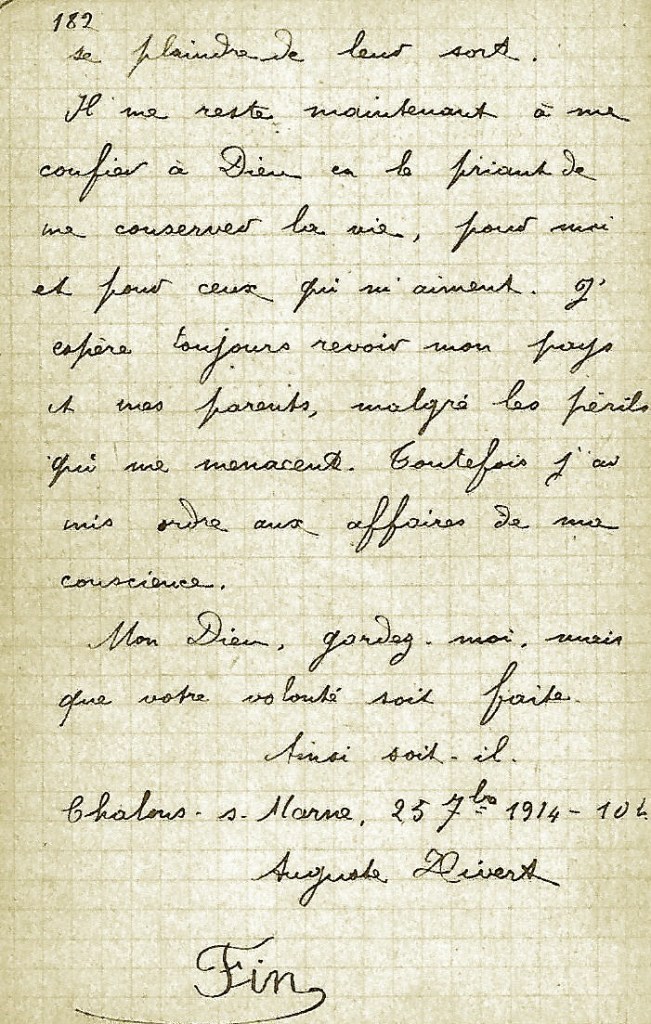 182
se plaindre de leur sort.
Il me reste maintenant à me
confier à Dieu en le priant de
me conserver la vie, pour moi
et pour ceux qui m'aiment. J'
espère toujours revoir mon pays
et mes parents, malgré les périls
qui me menacent. Toutefois j'ai
mis ordre aux affaires de ma
conscience.
Mon Dieu, gardez-moi, mais
que votre volonté soit faite.
Ainsi soit-il.
Chalons-s-Marne, 25 7bre 1914 - 10h.
Auguste
Fin